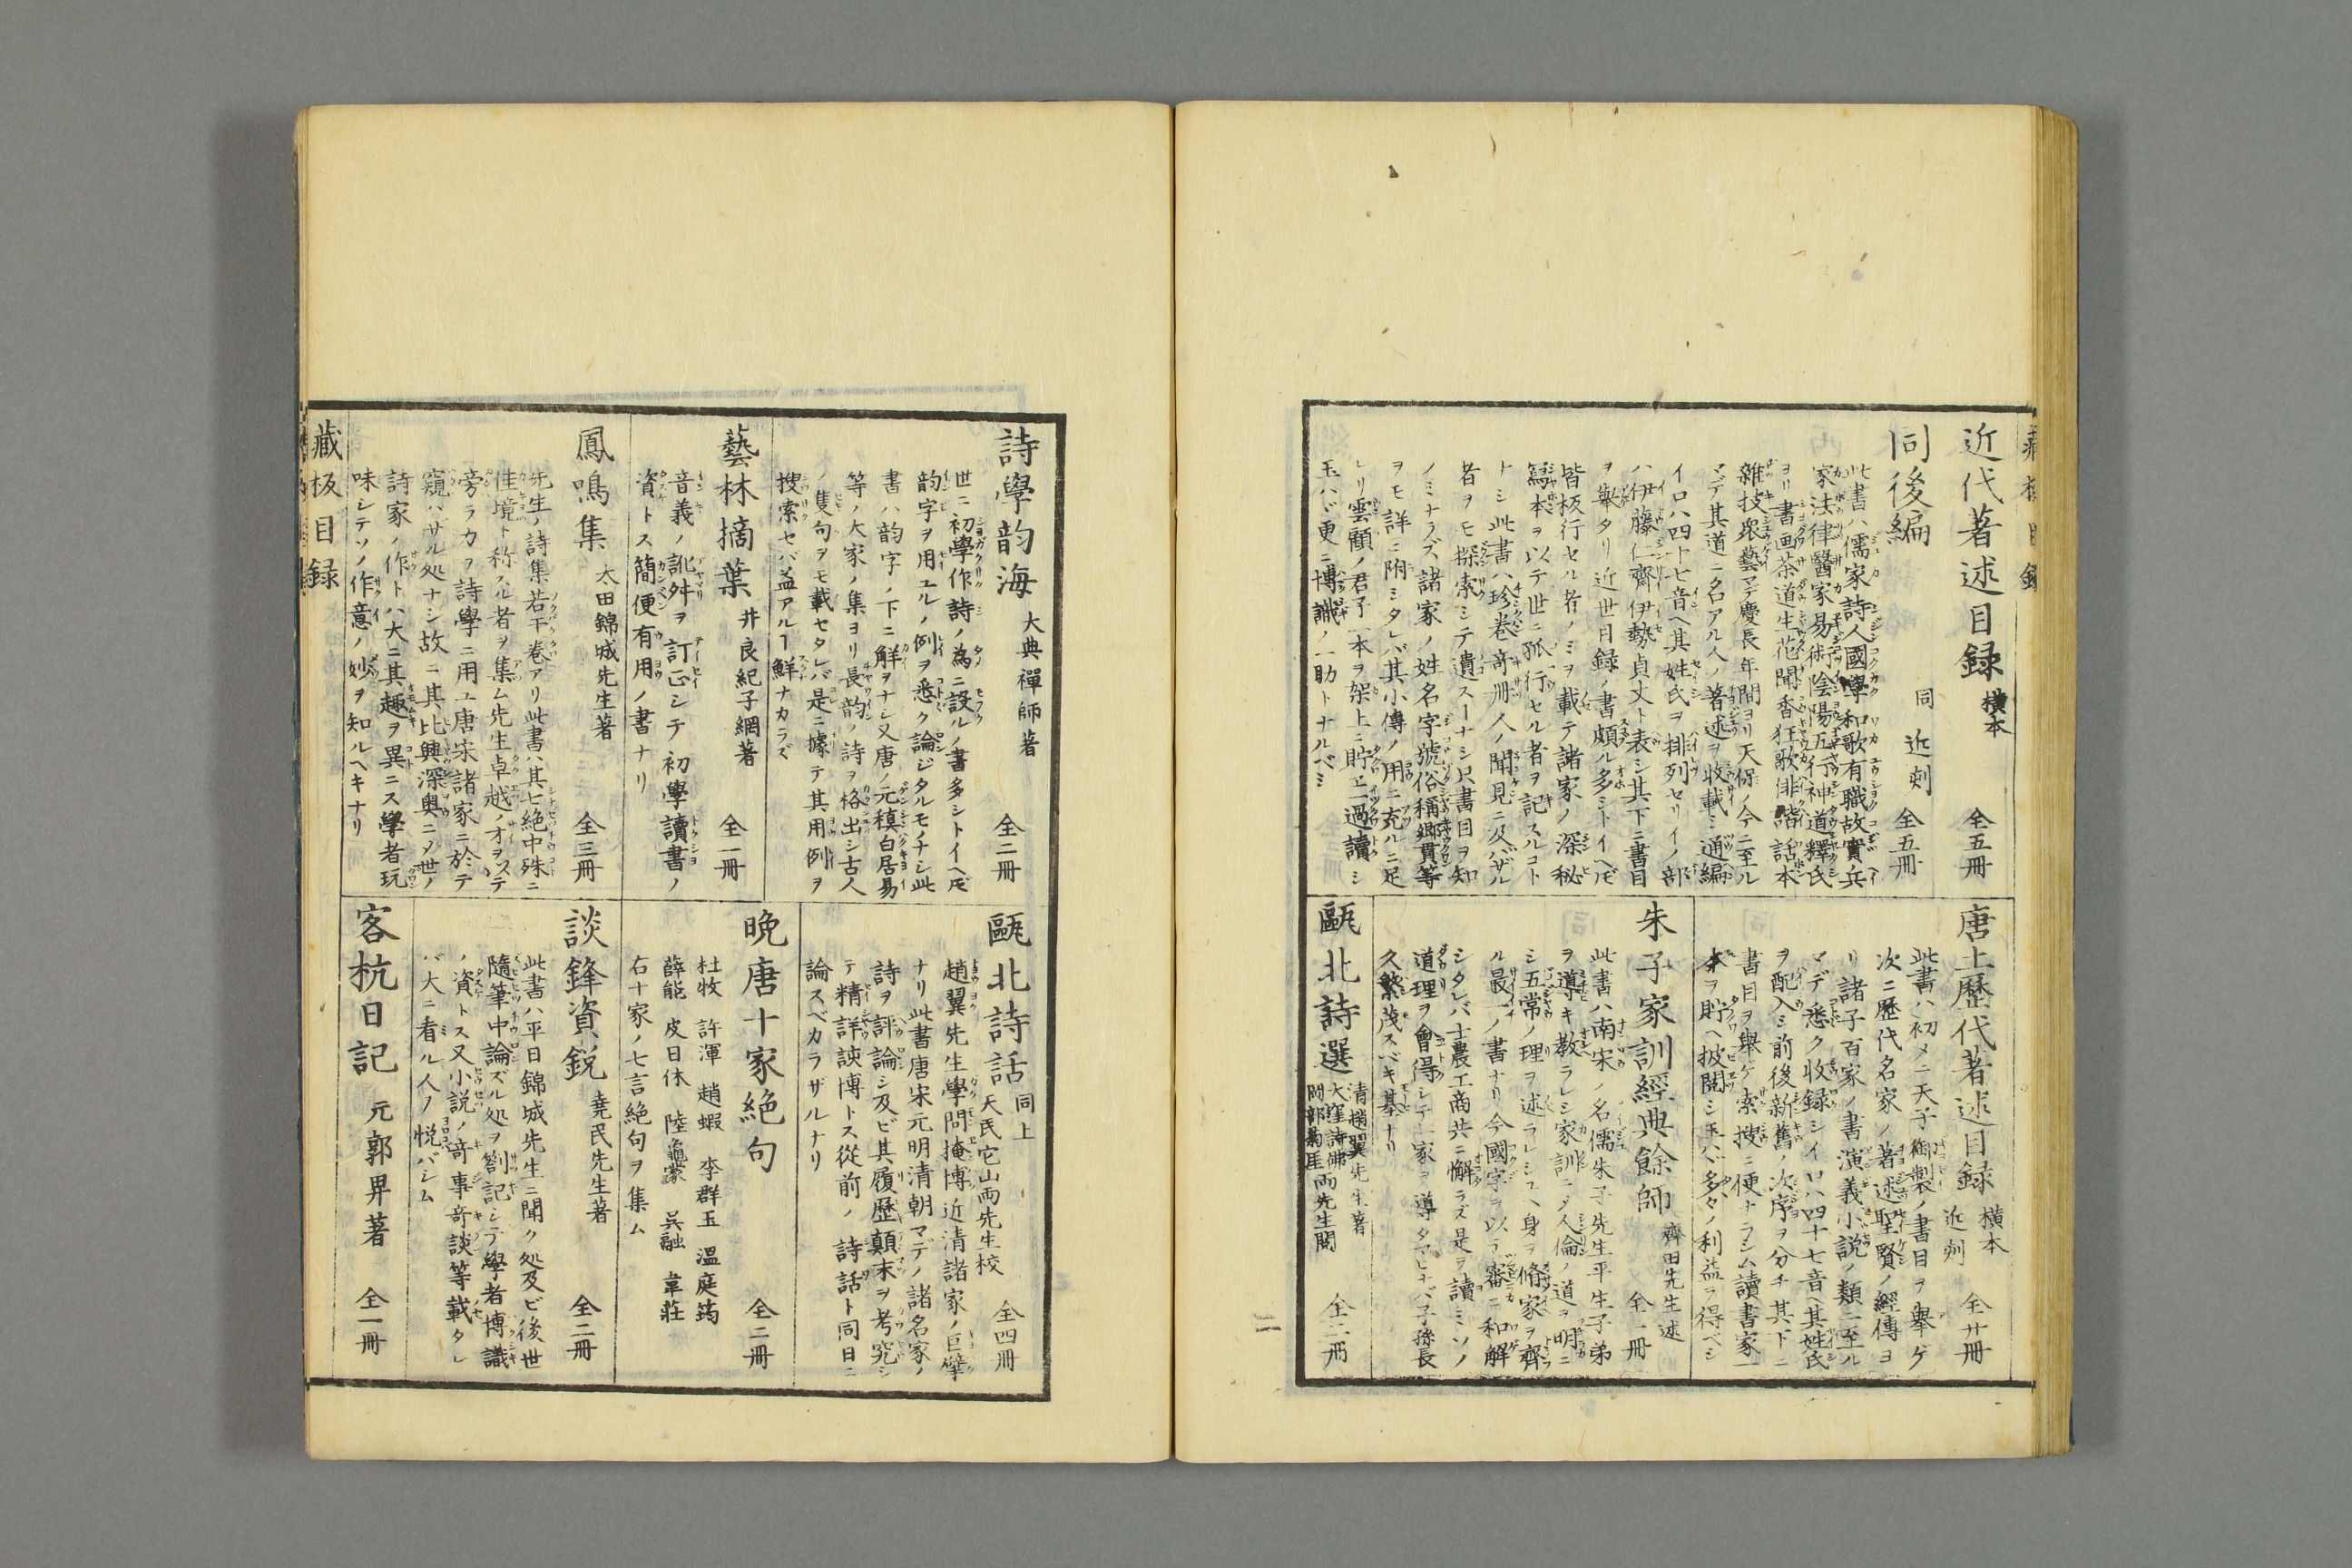 近代著述目録 横本 全五冊
同後編 同 近刻 全五冊
此書ハ儒家詩人國學和歌有職故實兵
家法律醫家易術陰陽五行神道釋氏
ヨリ書画茶道生花聞香狂歌俳諧話本
雜技衆藝マデ慶長年間ヨリ天保ノ今ニ至ル
マデ其道ニ名アル人ノ著述ヲ收載シ通編
イロハ四十七音ヘ其姓氏ヲ排列セリイノ部
ハ伊藤仁齋伊勢貞丈ト表シ其下ニ書目
ヲ擧タリ近世目録ノ書頗ル多シトイヘ𪜈
皆板行セル者ノミヲ載テ諸家ノ深秘
寫本ヲ以テ世ニ孤行セル者ヲ記スルコト
トシ此書ハ珍卷奇冊人ノ聞見ニ及バザル
者ヲモ探索シテ遺スーナシ只書目ヲ知
ノミナラズ諸家ノ姓名字號俗稱郷貫等
ヲモ詳ニ附シタレバ其小傳ノ用ニ充ルニ足
レリ雲顧ノ君子一本ヲ架上ニ貯ヱ一過讀シ
玉ハヾ更ニ博識ノ一助トナルベシ
唐土歷代著述目録 横本 近刻 全廿冊
此書ハ初メニ天子御製ノ書目ヲ擧ゲ
次ニ歷代名家ノ著述聖賢ノ經傳ヨ
リ諸子百家ノ書演義小説ノ類ニ至ル
マデ悉ク收録シイロハ四十七音ヘ其姓氏
ヲ配入シ前後新舊ノ次序ヲ分チ其下ニ
書目ヲ擧ゲ索搜ニ便ナラシム讀書家一
本ヲ貯ヘ披閲シ玉ハヾ多々ノ利益ヲ得ベシ
朱子家訓經典餘師 齊田先生述 全一冊
此書ハ南宋ノ名儒朱子先生平生子弟
ヲ導キ教ラレシ家訓ニタ人倫ノ道ヲ明ニ
シ五常ノ理ヲ述ラレシユヘ身ヲ脩家ヲ齊
ル最一ノ書ナリ今國字ヲ以テ審ニ和解
シタレバ士農工商共ニ懈ラズ是ヲ讀ミソノ
道理ヲ會得シテ一家ヲ導タマヒナバ子孫長
久繁茂スベキ基ナリ
甌北詩選 清趙翼先生著 大窪詩佛 両先生閲 全二冊
詩學韵海 大典禪師著 全二冊
世ニ初學作詩ノ為ニ設ルノ書多シトイヘ𪜈
韵字ヲ用ユルノ例ヲ悉ク論ジタルモノナシ此
書ハ韵字ノ下ニ解ヲナシ又唐ノ元稹白居易
等ノ大家ノ集ヨリ長韵ノ詩ヲ格出シ古人
ノ隻句ヲモ載セタレバ是ニ據テ其用例ヲ
搜索セバ益アルー鮮ナカラズ
藝林摘葉 井良紀子網著 全一冊
音義ノ訛舛ヲ訂正シテ初學讀書ノ
資トス簡便有用ノ書ナリ
鳳鳴集 太田錦城先生著 全三冊
先生ノ詩集若干卷アリ此書ハ其七絶中殊ニ
佳境ト称スル者ヲ集ム先生卓越ノオヲステ
旁ラカヲ詩學ニ用ユ唐宋諸家ニ於テ
窺ハザル処ナシ故ニ其比興深奥ニヲ世ノ
詩家ノ作トハ大ニ其趣ヲ異ニス學者玩
味シテソノ作意ノ妙ヲ知ルヘキナリ
甌北詩話 同上 天民宅山両先生校 全四冊
趙翼先生學問掩博近清諸家ノ巨擘
ナリ此書唐宋元明清朝マデノ諸名家ノ
詩ヲ評論シ及ビ其履歷顛末ヲ考究シ
テ精詳該博トス從前ノ詩話ト同日ニ
論スベカラザルナリ
晩唐十家絶句 全二冊
杜牧 許渾 趙嘏 李群玉 溫庭筠
薛能 皮日休 陸龜蒙 吳融 韋荘
右十家ノ七言絶句ヲ集ム
談鋒資鋭 堯民先生著 全二冊
此書ハ平日錦城先生ニ聞ク処及ビ後世
隨筆中論ズル処ヲ劄記シテ學者博識
ノ資トス又小説ノ奇事奇談等載タレ
バ大ニ看ル人ノ悦バシム
客杭日記 元郭畀著 全一冊
藏板目録
二